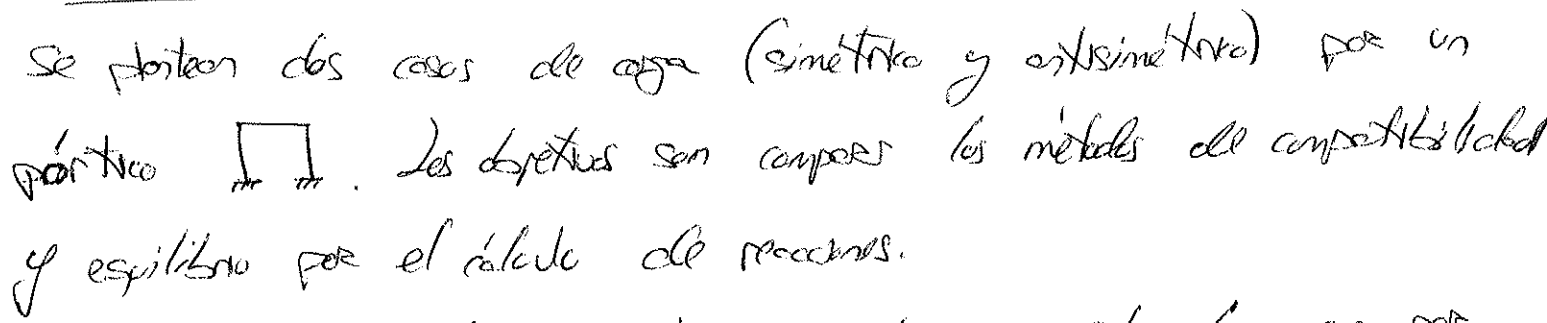 Se plantean dos casos de carga (simétrico y antisimétrico) por un
pórtico . Los objetivos son comparar los métodos de compatibilidad
y equilibrio por el cálculo de reacciones.